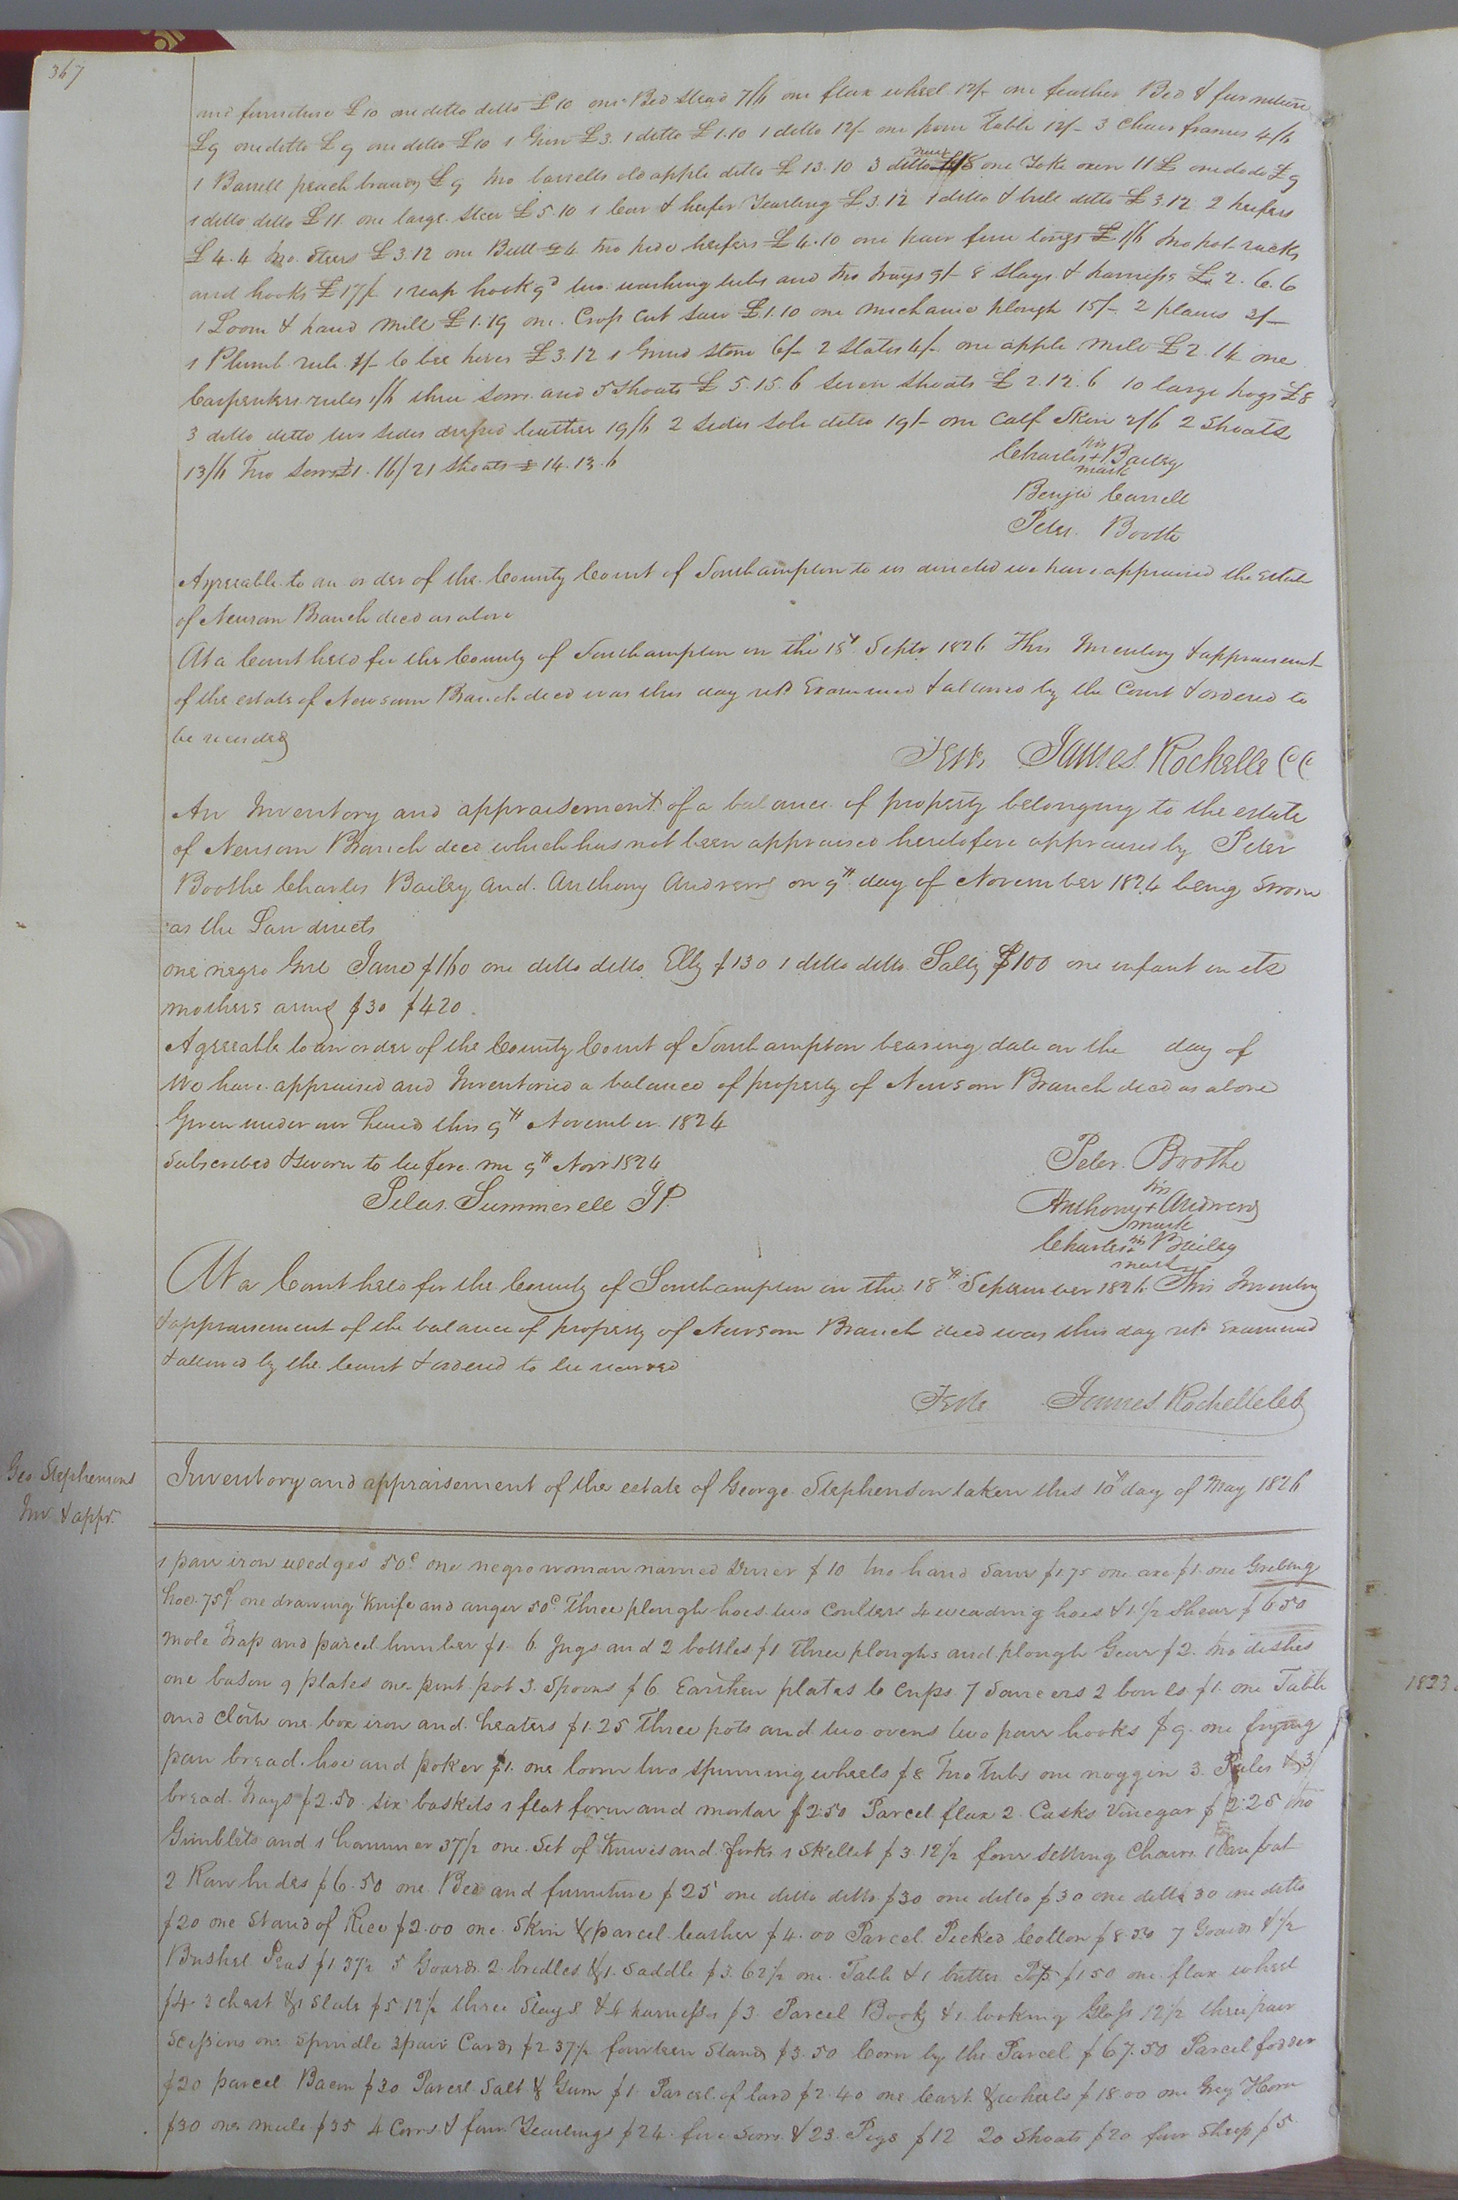 367
and furniture £10 one ditto ditto £10 one Bed stead 7/6 one flax wheel 12/- one feather Bed & furniture
£9 one ditto £9 one ditto £10 1 Gun £3. 1 ditto £1.10 1 ditto 12/- one pine Table 12/- 3 chair frames 4/6
1 Barrell peach brandy £9 two barrells old apple ditto £13.10 3 ditto one Yoke oxen 11£ one do do £9
1 ditto ditto £11 one large steer £5.10 1 Cow & heifer Yearling £3.12 1 ditto & bull ditto £3.12 2 heifers
£4.4 two Steers £3.12 one Bull £4 two pide heifers £4.10 one pair fire tongs 1/6 two pot racks
and hooks £17/ 1 reap hook 9d two washing tubs and two trays 9/- 8 Slays & harness £2.6.6
1 Loom & hand Mill £1.19 one Crop Cut Saw £1.10 one mechanic plough 15/- 2 planes 3/-
1 Plumb rule 6 bee hives £3.12 1 Grind stone 6/- 2 Slates 4/- one apple Mill £2.14 one
Carpenters rules 1/6 three sows and 5 Shoats £5.15.6 seven shoats £2.12.6 10 large hogs £8
3 ditto ditto two sides dressed leather 19/6 2 sides sole ditto 19/- one Calf Skin 2/6 2 Shoats
13/6 Two Sows £1.16/ 21 Shoats £14.13.6
Charles his + mark Bailey
Benja Carrell
Peter Boothe
Agreeable to an order of the County Court of Southampton to us directed we have appraised the Estate
of Newsom Branch decd as above
At a Court held for the County of Southampton on the 18th Septr 1826 This Inventory & appraisement
of the estate of Newsom Branch decd was this day retd Examined & allowed by the Court & ordered to
be recorded
Teste James Rochelle CC
An Inventory and appraisement of a balance of property belonging to the estate
of Newsom Branch decd which has not been appraised heretofore appraised by Peter
Boothe Charles Bailey and Anthony Andrews on 9th day of November 1824 being Sworn
as the Law directs
one negro Girl Jane $160 one ditto ditto Elly $130 1 ditto ditto Sally $100 one infant in its
mothers arms $30 $420.
Agreeable to an order of the County Court of Southampton bearing date on the day of
We have appraised and Inventoried a balance of property of Newsom Branch decd as above
Given under our hands this 9th November 1824
Subscribed & sworn to before me 9th Novr 1824
Peter Boothe
Silas Summerell JP
Anthony his + mark Andrews
Charles his + mark Bailey
At a Court held for the County of Southampton on the 18th September 1826 This Inventory
& appraisement of the balance of property of Newsom Branch decd was this day retd Examined
& allowed by the Court & ordered to be recorded
Teste James Rochelle Clk
Geo Stephensons
Inv & appr.
Inventory and appraisement of the estate of George Stephenson taken this 10th day of May 1826
1 pair iron wedges 50c one negro woman named $10 two hand Saws $1.75 one axe $1. one Grubing
hoe 75c one drawing Knife and auger 50c Three plough hoes two Coulters 4 weading hoes & 1/2 Shear $6.50
Mole Trap and parcel lumber $1. 6 Jugs and 2 bottles $1 Three ploughs and plough Gear $2. two dishes
one bason 9 plates one pint pot 3 Spoons $6. Earthen plates 6 Cups 7 Saucers 2 bowls $1. one Table
and Cloth one box iron and heaters $1.25 Three pots and two ovens two pair hooks $9. one frying
pan bread hoe and poker $1. one loom two spinning wheels $8 Two Tubs one noggin 3 Pales & 3
bread Trays $2.50 six baskets 1 flat form and mortar $2.50 Parcel flax 2 Casks Vinegar $2.25 two
Gimblets and 1 hammer 37½ one Set of Knives and forks 1 Skellet $3.12½ four setting Chairs
2 Raw hides $6.50 one Bed and furniture $25 one ditto ditto $30 one ditto $30 one ditto 30 one ditto
$20 one Stand of Rice $2.00 one Skin & parcel leather $4.00 Parcel Picked Cotton $8.50 7 Goards & ½
Bushel Peas $1.37½ 5 Goards 2 bridles & 1 Saddle $3.62½ one Table & 1 butter Pot $1.50 one flax wheel
$4. 3 chest & 1 Slate $5.12½ three Slays & 4 harness $3. Parcel Books & 1 looking Glass 12½ three pair
Scissors one Spindle 3 pair Cards $2.37½ fourteen Stands $3.50 Corn by the Parcel $67.50 Parcel fodder
$20 parcel Bacon $30 Parcel Salt & Gum $1. Parcel of lard $2.40 one Cart & wheels $18.00 one Grey Horse
$30 one mule $35 4 Cows & four Yearlings $24. five Sows & 23 Pigs $12 20 Shoats $20 four Sheep $5
1823